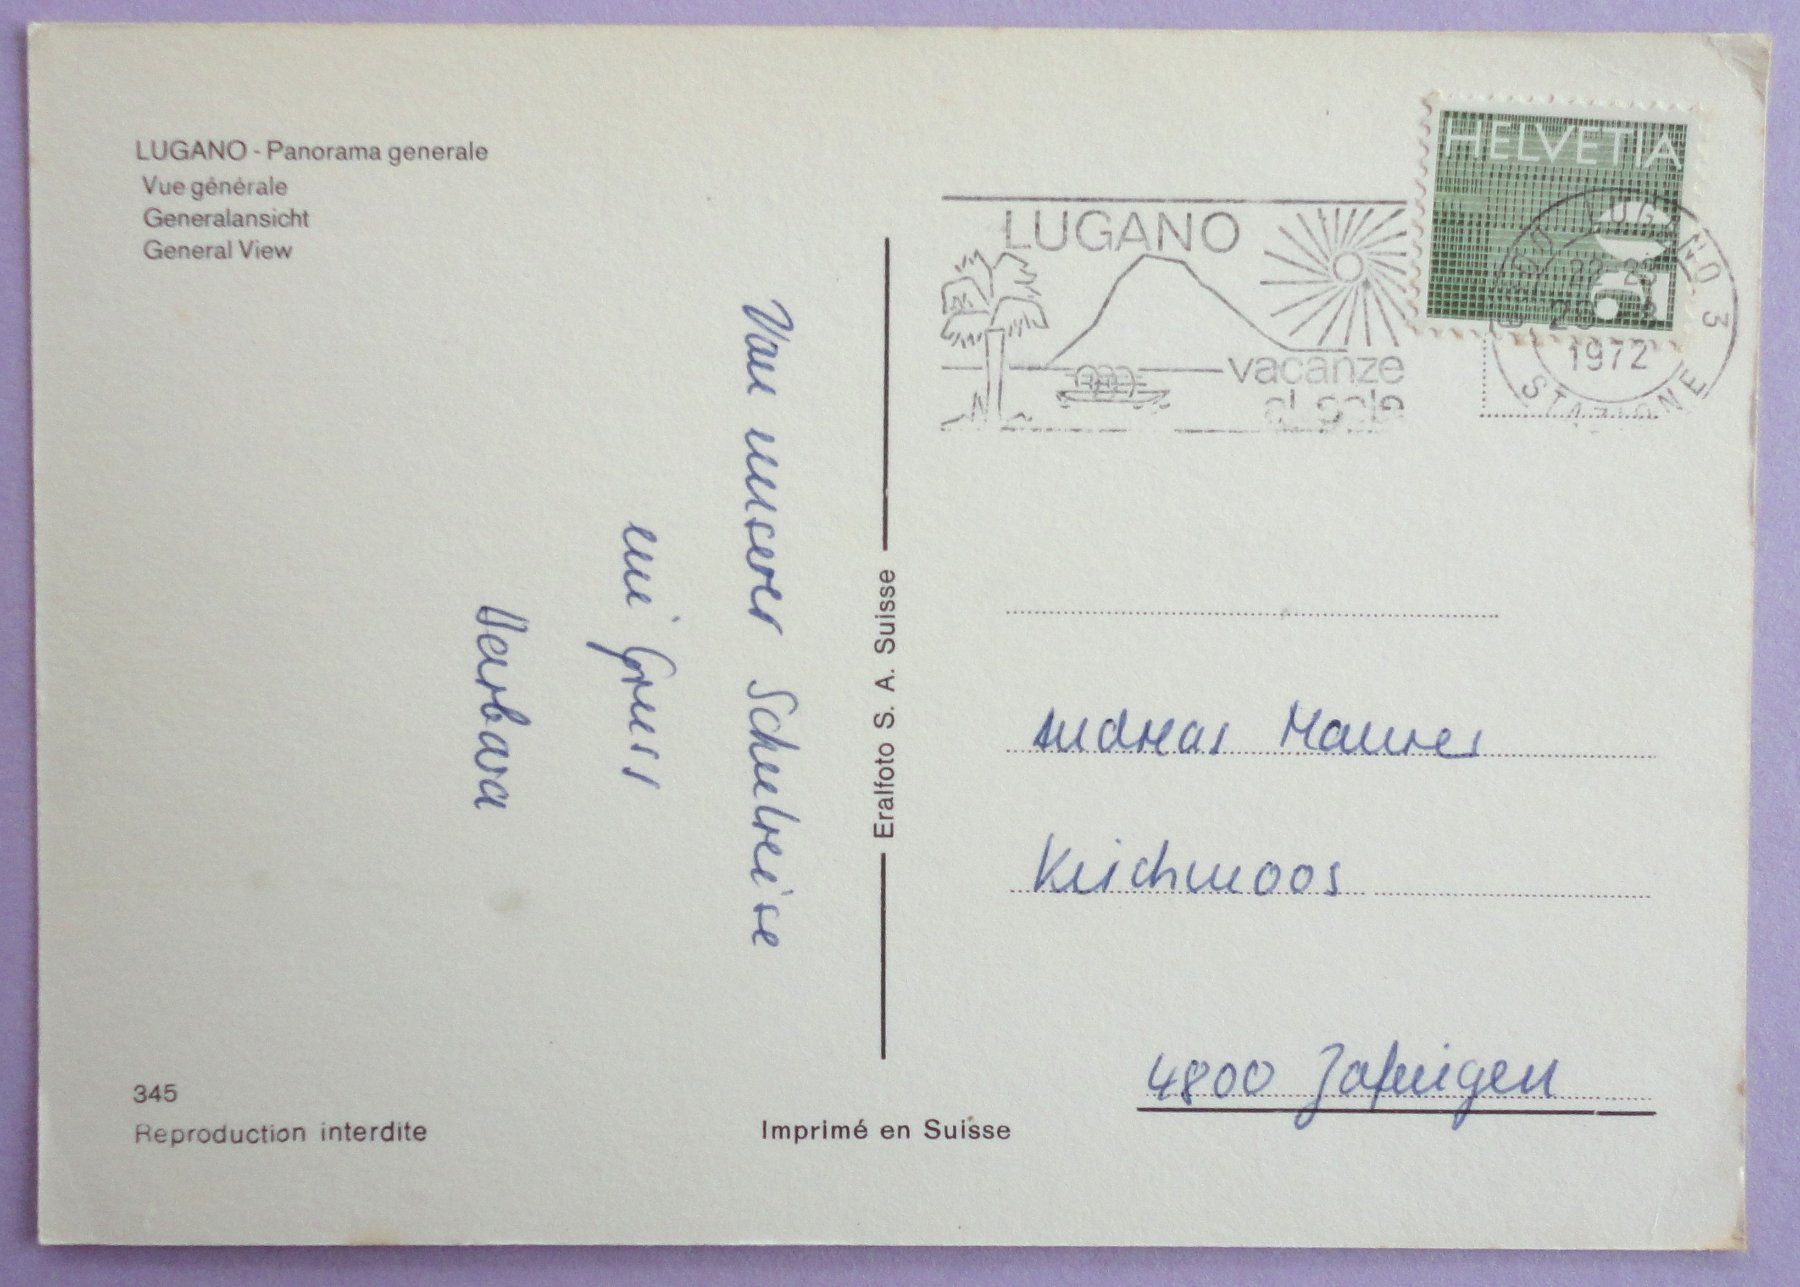 LUGANO - Panorama generale
Vue générale
Generalansicht
General View
Von unserer Schulreise
ein Gruss
Barbara
345
Reproduction interdite
Eralfoto S. A. Suisse
Imprimé en Suisse
LUGANO
vacanze
al sole
HELVETIA
15
LUGANO 3
STAZIONE
1972
Andreas Maurer
Kirchmoos
4800 Zofingen